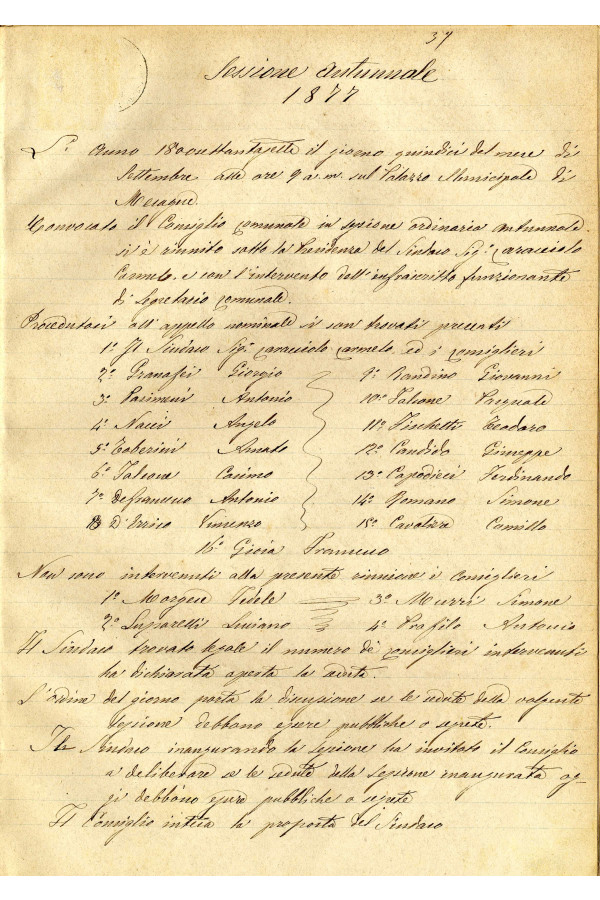 37
Sessione autunnale
1877
L'anno 1800settantasette il giorno quindici del mese di
Settembre alle ore 9 a.m. sul Palazzo Municipale di
Mesagne.
Convocato il Consiglio comunale in sessione ordinaria autunnale.
si è riunito sotto la Presidenza del Sindaco Sig. Caracciolo
Carmelo, e con l'intervento dell'infrascritto funzionante
da Segretario comunale.
Procedutosi all'appello nominale si son trovati presenti
1° Il Sindaco Sig. Caracciolo Carmelo, ed i consiglieri
2° Granafei Giorgio
3° Antonio
4° Nacci Angelo
5° Amato
6° Falcone Cosimo
7° Defrancesco Antonio
8 D'Errico Vincenzo
9° Bandino Giovanni
10° Falcone Pasquale
11° Fischetti Teodoro
12° Candido Giuseppe
13° Capodieci Ferdinando
14° Romano Simone
15° Cavaliere Camillo
16° Gioia Francesco
Non sono intervenuti alla presente riunione i Consiglieri
1° Morgese Fedele
2° Luparelli Luciano
3° Murri Simone
4° Profilo Antonio
Il Sindaco trovato legale il numero de' consiglieri intervenuti
ha dichiarata aperta la seduta.
L'ordine del giorno porta la discussione se le sedute della
sessione debbono essere pubbliche o segrete.
Il Sindaco inaugurando la sessione ha invitato il Consiglio
a deliberare se le sedute della sessione inaugurata og-
gi debbono essere pubbliche o segrete
Il Consiglio intesa la proposta del Sindaco